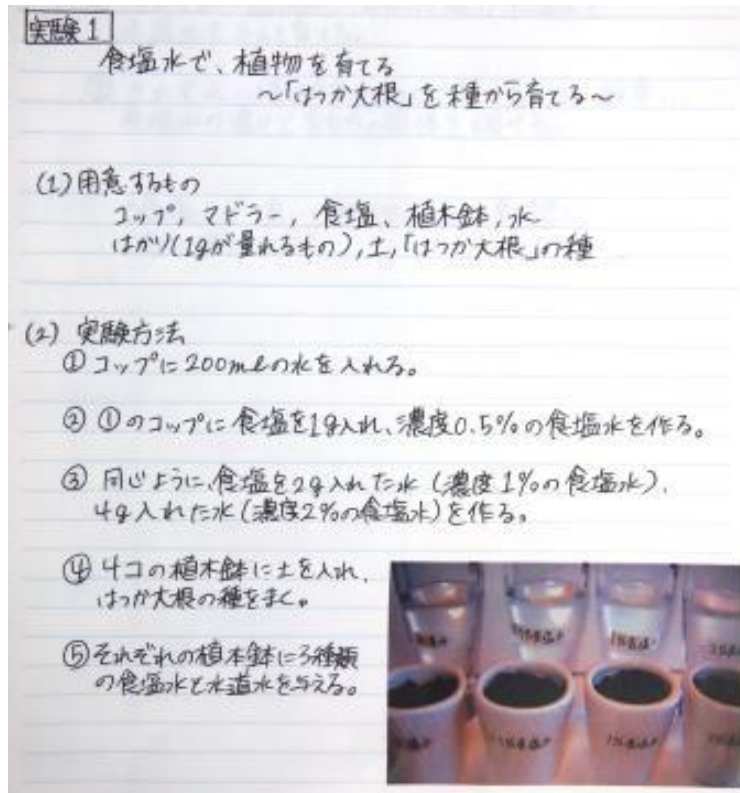 実験1
食塩水で、植物を育てる
～「はつか大根」を種から育てる～
(1)用意するもの
コップ, マドラー, 食塩、植木鉢, 水
はかり(1gが量れるもの), 土, 「はつか大根」の種
(2) 実験方法
① コップに200mlの水を入れる。
② ①のコップに食塩を1g入れ、濃度0.5%の食塩水を作る。
③ 同じように、食塩を2g入れた水 (濃度1%の食塩水)、
4g入れた水(濃度2%の食塩水)を作る。
④ 4コの植木鉢に土を入れ、
はつか大根の種をまく。
⑤ それぞれの植木鉢に3種類
の食塩水と水道水を与える。